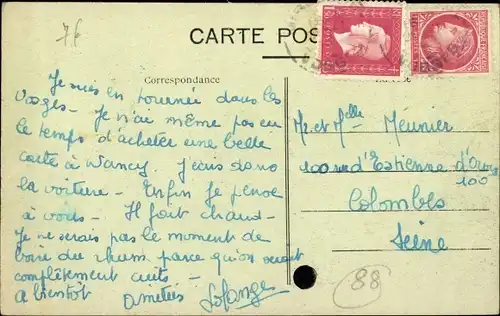 76
CARTE POS
Correspondance
Je suis en tournée dans les
Vosges - Je n'ai même pas eu
le temps d'acheter une belle
carte à Nancy. J'écris dans
la voiture - Enfin je pense
à vous - Il fait chaud -
Je ne serais pas le moment de
boire du rhum parce qu'on serait
complètement cuits -
à bientôt amitiés Solange
Mr. et Melle Meunier
100 rue d'Estienne d'Orves
100
Colombes
Seine
88